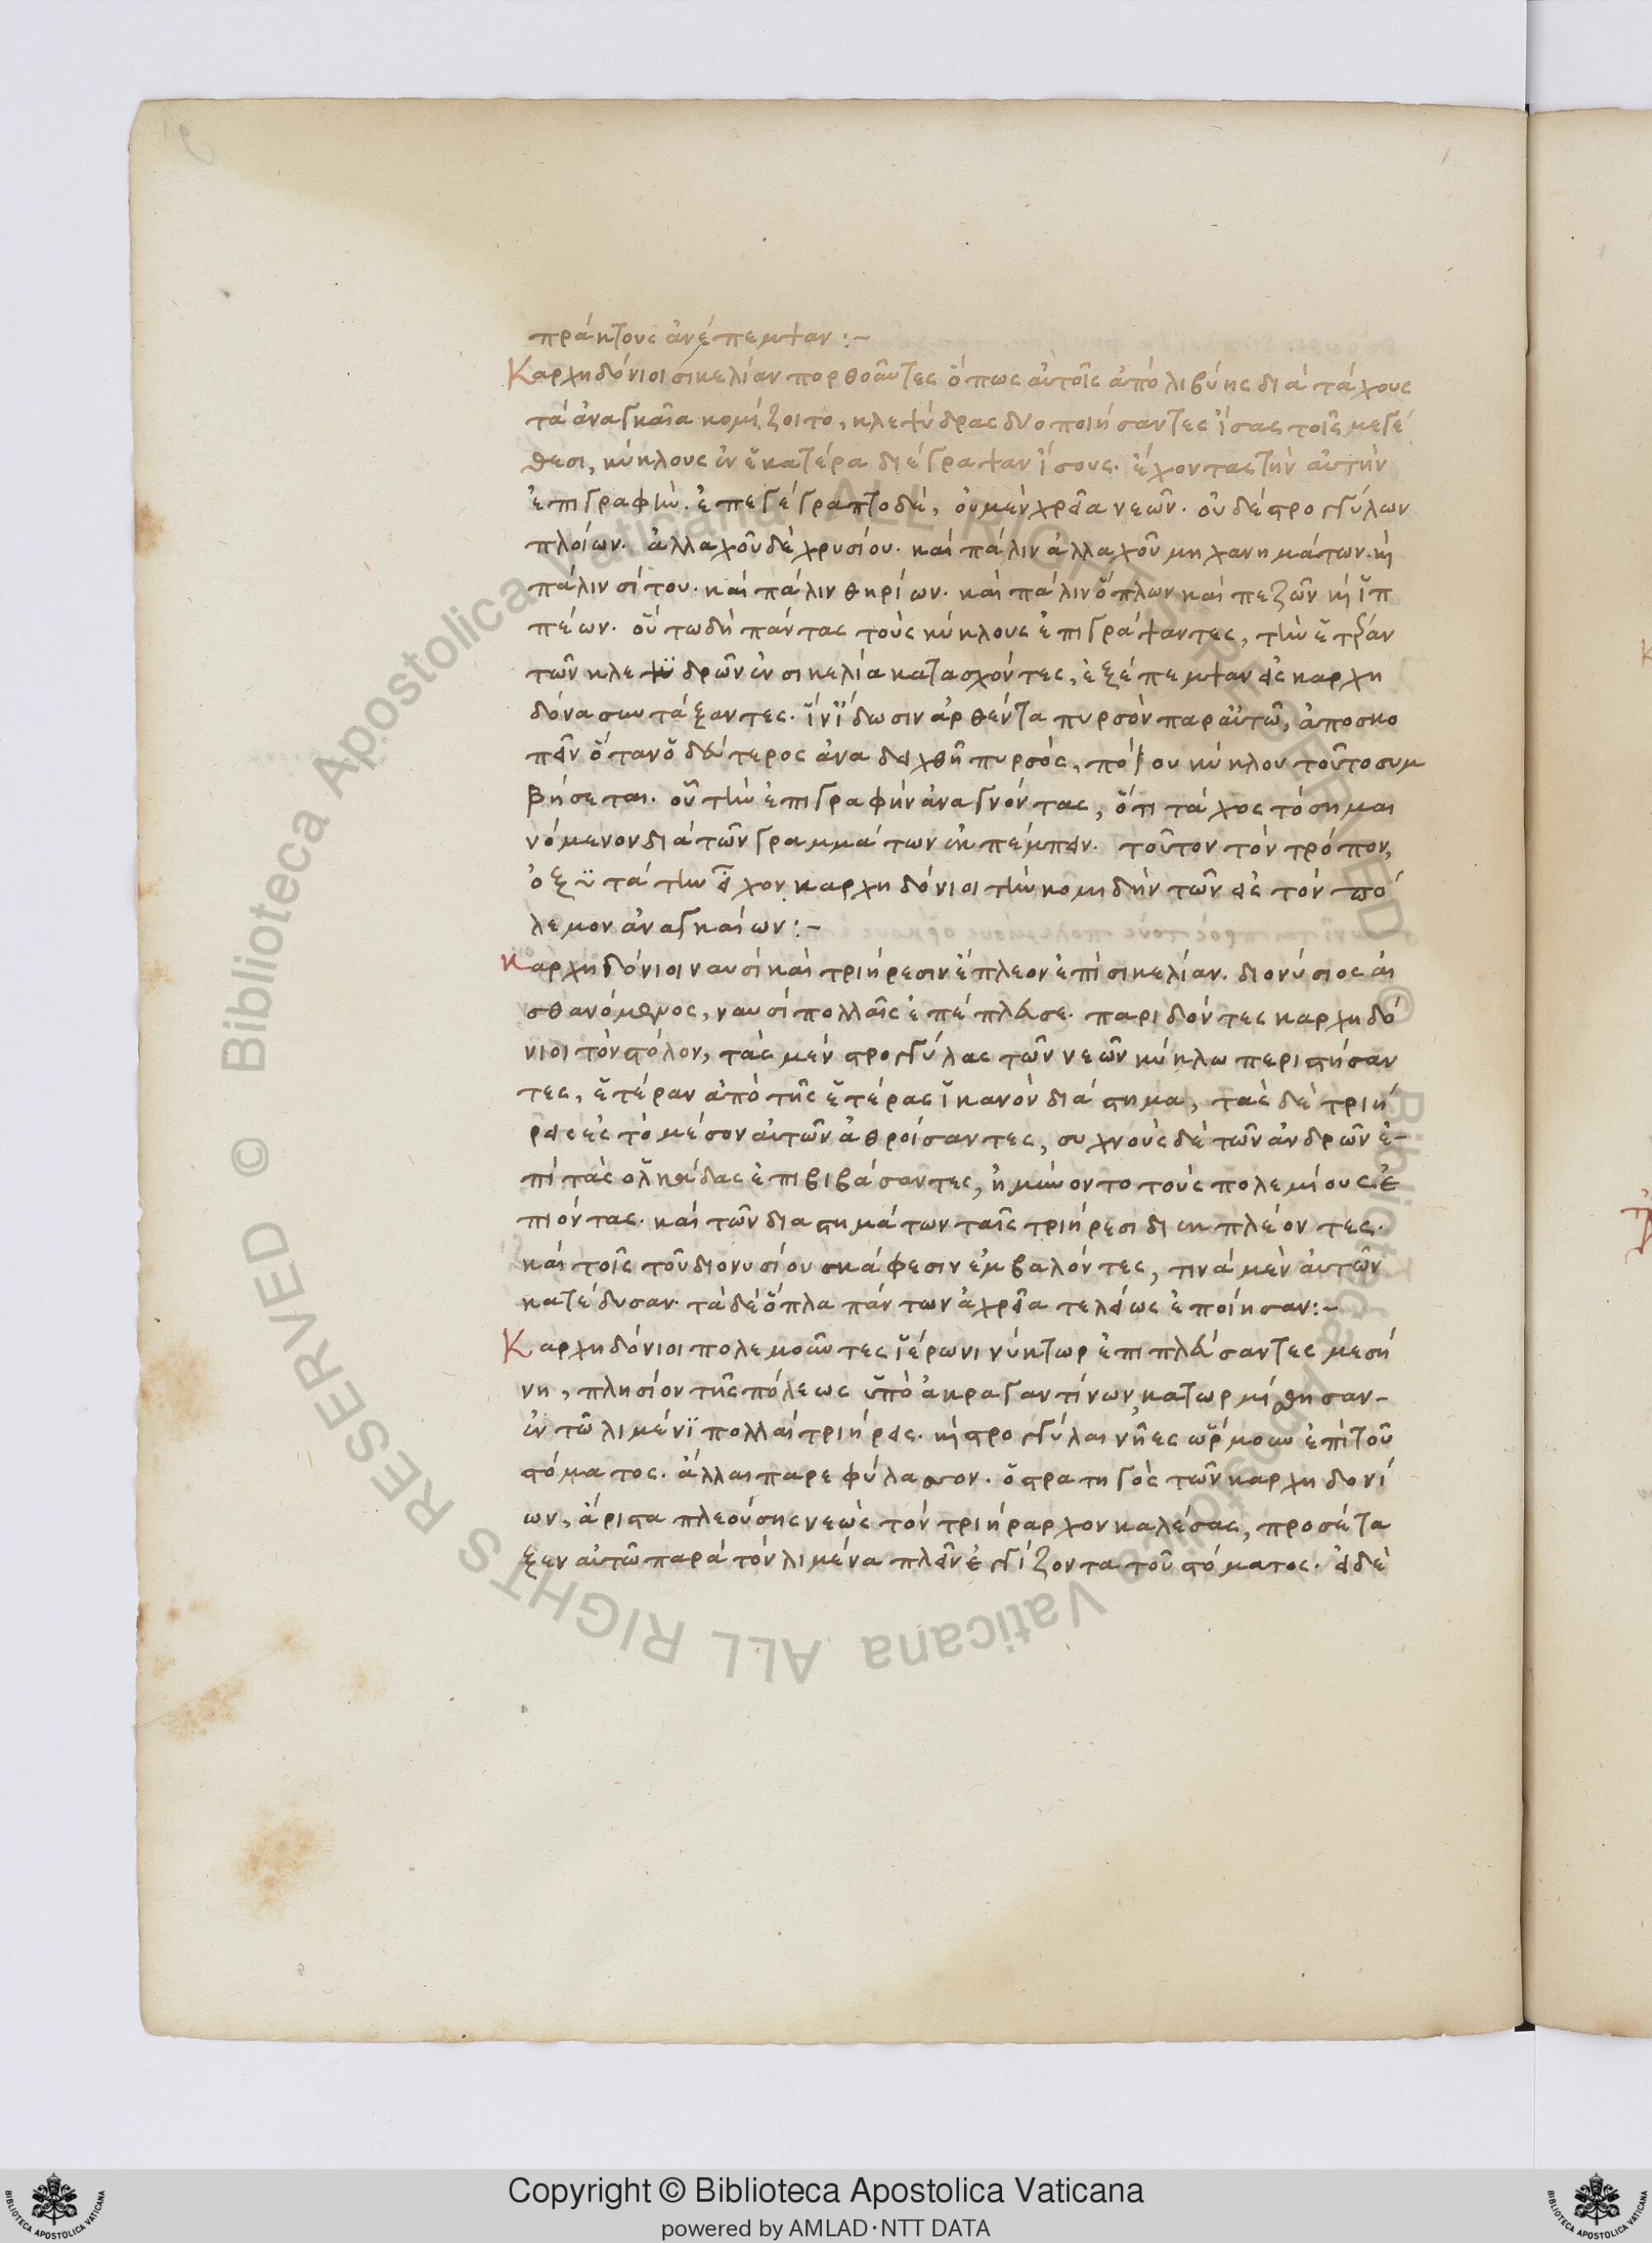 πράκτους ἀνέπεμψαν:–
Καρχηδόνιοι σικελίαν πορθοῦντες ὅπως αὐτοῖς ἀπὸ λιβύης διὰ τάχους
τὰ ἀναγκαῖα κομίζοιτο, κλεψύδρας δύο ποιήσαντες ἴσας τοῖς μεγέ
θεσι, κύκλους ἐν ἑκατέρα διέγραψαν ἴσους. ἔχοντας τὴν αὐτὴν
ἐπιγραφὴν. ἐπεγέγραπτο δέ, οὐ μὲν χρεία νεῶν. οὐ δὲ στρογγύλων
πλοίων. ἀλλαχοῦ δὲ χρυσίου. καὶ πάλιν ἀλλαχοῦ μηχανημάτων. καὶ
πάλιν σίτου. καὶ πάλιν θηρίων. καὶ πάλιν ὅπλων καὶ πεζῶν καὶ ἵπ
πέων. οὕτω δὴ πάντας τοὺς κύκλους ἐπιγράψαντες, τὴν ἑτέραν
τῶν κλεψϋδρῶν ἐν σικελία κατασχόντες, ἐξέπεμψαν εἰς καρχη
δόνα συντάξαντες. ἵν ἴδωσιν ἀρθέντα πυρσὸν παραὐτῶ, ἀποσκο
πεῖν ὅταν ὁ δεύτερος ἀναδειχθῆ πυρσὸς, πόσου κύκλου τοῦτο συμ
βήσεται. οὗ τὴν ἐπιγραφὴν ἀναγνόντας, ὅτι τάχος τὸ σημαι
νόμενον διὰ τῶν γραμμάτων ἐκπέμπειν. τοῦτον τὸν τρόπον,
ὀξϋτάτην εἶχον καρχηδόνιοι τὴν κομιδὴν τῶν εἰς τὸν πό
λεμον ἀναγκαίων:–
Καρχηδόνιοι ναυσὶ καὶ τριήρεσιν ἔπλεον ἐπὶ σικελίαν. διονύσιος αἰ
σθανόμενος, ναυσὶ πολλαῖς ἐπέπλευσε. παριδόντες καρχηδό
νιοι τὸν στόλον, τὰς μὲν στρογγύλας τῶν νεῶν κύκλω περιστήσαν
τες, ἑτέραν ἀπὸ τῆς ἑτέρας ἱκανὸν διάστημα, τὰς δὲ τριή
ρεις εἰς τὸ μέσον αὐτῶν ἀθροίσαντες, συχνοὺς δὲ τῶν ἀνδρῶν ἐ–
πὶ τὰς ὁλκάδας ἐπιβιβάσαντες, ἠμύνοντο τοὺς πολεμίους ἐ
πιόντας. καὶ τῶν διαστημάτων ταῖς τριήρεσι διεκπλέοντες.
καὶ τοῖς τοῦ διονυσίου σκάφεσιν ἐμβαλόντες, τινὰ μὲν αὐτῶν
κατέδυσαν. τὰ δὲ ὅπλα πάντων ἀχρεῖα τελείως ἐποίησαν:–
Καρχηδόνιοι πολεμοῦντες ἱέρωνι νύκτωρ ἐπιπλεύσαντες μεσή
νη, πλησίον τῆς πόλεως ὑπὸ ἀκραγαντίνων, κατωρμίσθησαν–
ἐν τῶ λιμένϊ πολλαὶ τριήρεις. καὶ στρογγύλαι νῆες ὥρμουν ἐπὶ τοῦ
στόματος. ἄλλαι παρεφύλασσον. ὁ στρατηγὸς τῶν καρχηδονί
ων, ἄριστα πλεούσης νεὼς τὸν τριήραρχον καλέσας, προσέτα
ξεν αὐτῶ παρὰ τὸν λιμένα πλεῖν ἐγγίζοντα τοῦ στόματος. εἰ δὲ
© Biblioteca Apostolica Vaticana ALL RIGHTS RESERVED © Biblioteca Apostolica Vaticana ALL RIGHTS RESERVED
Copyright © Biblioteca Apostolica Vaticana
powered by AMLAD·NTT DATA
BIBLIOTECA APOSTOLICA VATICANA
BIBLIOTECA APOSTOLICA VATICANA